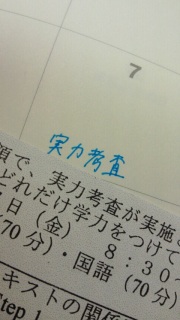 7
実力考査
頭で、実力考査が実施さ
どれだけ学力をつけて
日(金) 8:30~
70分)・国語(70分)
キストの関係
Step 1